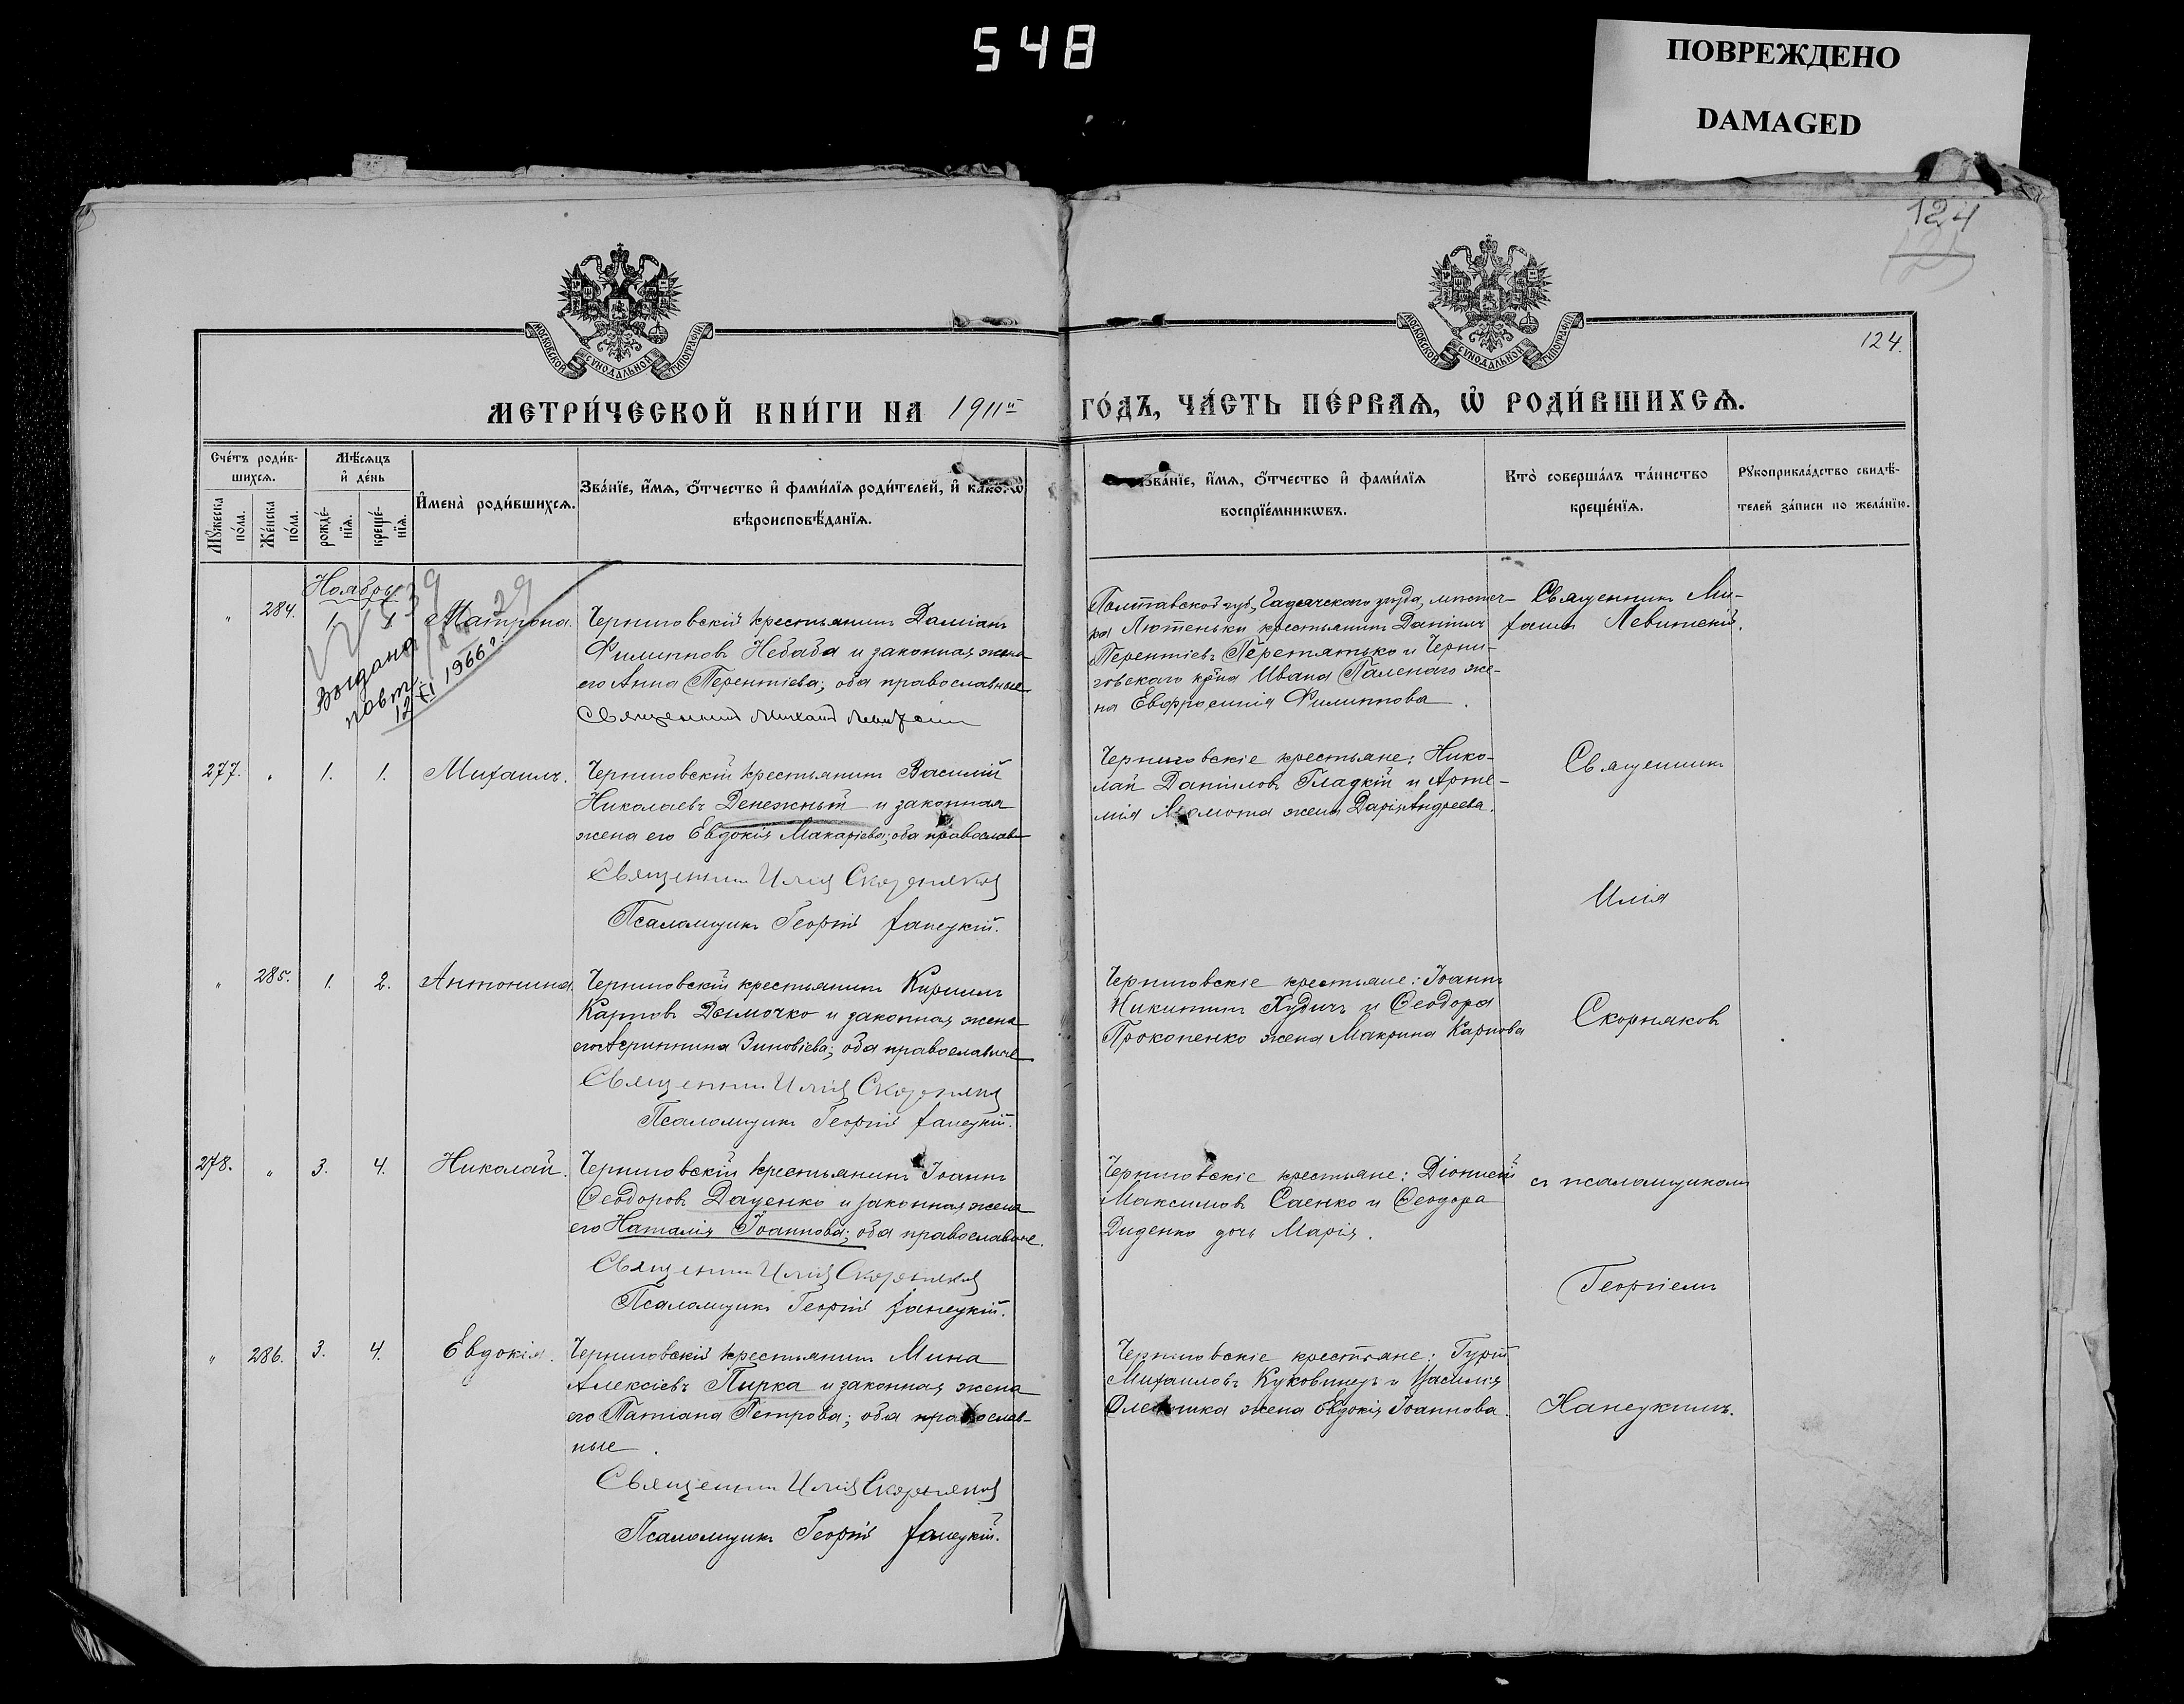 548
ПОВРЕЖДЕНО
DAMAGED
124
124.
МОСКОВСКОЙ СѴНОДАЛЬНОЙ ТИПОГРАФІИ
МОСКОВСКОЙ СѴНОДАЛЬНОЙ ТИПОГРАФІИ
МЕТРИ́ЧЕСКОЙ КНИ́ГИ НА 1911й ГО́ДЪ, ЧА́СТЬ ПЕ́РВАѦ, Ѡ҆ РОДИ́ВШИХСѦ.
Сче́тъ роди́в-
шихсѧ.
Мꙋ́жеска
по́ла.
Же́нска
по́ла.
Мѣ́сѧцъ
и҆ де́нь
рожде́-
нїѧ.
креще́-
нїѧ.
И҆мена̀ роди́вшихсѧ.
Зва́нїе, и҆́мѧ, ѻ҆́тчество и҆ фами́лїѧ роди́телей, и҆ како́гѡ
вѣроисповѣ́данїѧ.
Зва́нїе, и҆́мѧ, ѻ҆́тчество и҆ фами́лїѧ
воспрїе́мникѡвъ.
Кто̀ соверша́лъ та́инство
креще́нїѧ.
Рꙋкоприкла́дство свидѣ́-
телей за́писи по жела́нїю.
Ноябрь
" 284. 1. 1. Матрона.
Черниговскій крестьянинъ Даміанъ
Филипповъ Небаба и законная жена
его Анна Терентіева; оба православные
Священникъ Михаилъ
Полтавской губ., Гадячскаго уѣзда, местеч-
ка Лютеньки крестьянинъ Даніилъ
Терентіевъ Перетятько и Черни-
говскаго кр-на Ивана Паленаго же-
на Евфросинія Филиппова.
Священникъ Ми-
хаилъ Левитскій.
Выдана
повт.
12 XI 1966 г.
277. " 1. 1. Михаилъ.
Черниговскій крестьянинъ Василій
Николаевъ Денежный и законная
жена его Евдокія Макаріева; оба православ
Священникъ Илія Скорняковъ
Псаломщикъ Георгій Ханецкій.
Черниговскіе крестьяне: Нико-
лай Даніиловъ Гладкій и Арте-
мія жена Дарія Андреева.
Священникъ
Илія
" 285. 1. 2. Антонина.
Черниговскій крестьянинъ Кириллъ
Карповъ Дымочко и законная жена
его Агриппина Зиновіева; оба православные
Священникъ Илія Скорняковъ
Псаломщикъ Георгій Ханецкій.
Черниговскіе крестьяне: Іоаннъ
Никитинъ Худичъ и Ѳеодора
Прокопенко жена Макрина Карпова
Скорняковъ
278. " 3. 4. Николай.
Черниговскій крестьянинъ Іоаннъ
Ѳеодоровъ Даценко и законная жена
его Наталія Іоаннова; оба православные.
Священникъ Илія Скорняковъ
Псаломщикъ Георгій Ханецкій.
Черниговскіе крестьяне: Діонисій
Максимовъ Саенко и Ѳеодора
Диденко дочь Марія.
съ псаломщикомъ
Георгіемъ
" 286. 3. 4. Евдокія.
Черниговскій крестьянинъ Мина
Алексіевъ Пирка и законная жена
его Татіана Петрова; оба православ-
ные.
Священникъ Илія Скорняковъ
Псаломщикъ Георгій Ханецкій.
Черниговскіе крестьяне: Гурій
Михаиловъ Куковинецъ и Василія
жена Евдокія Іоаннова.
Ханецкимъ.